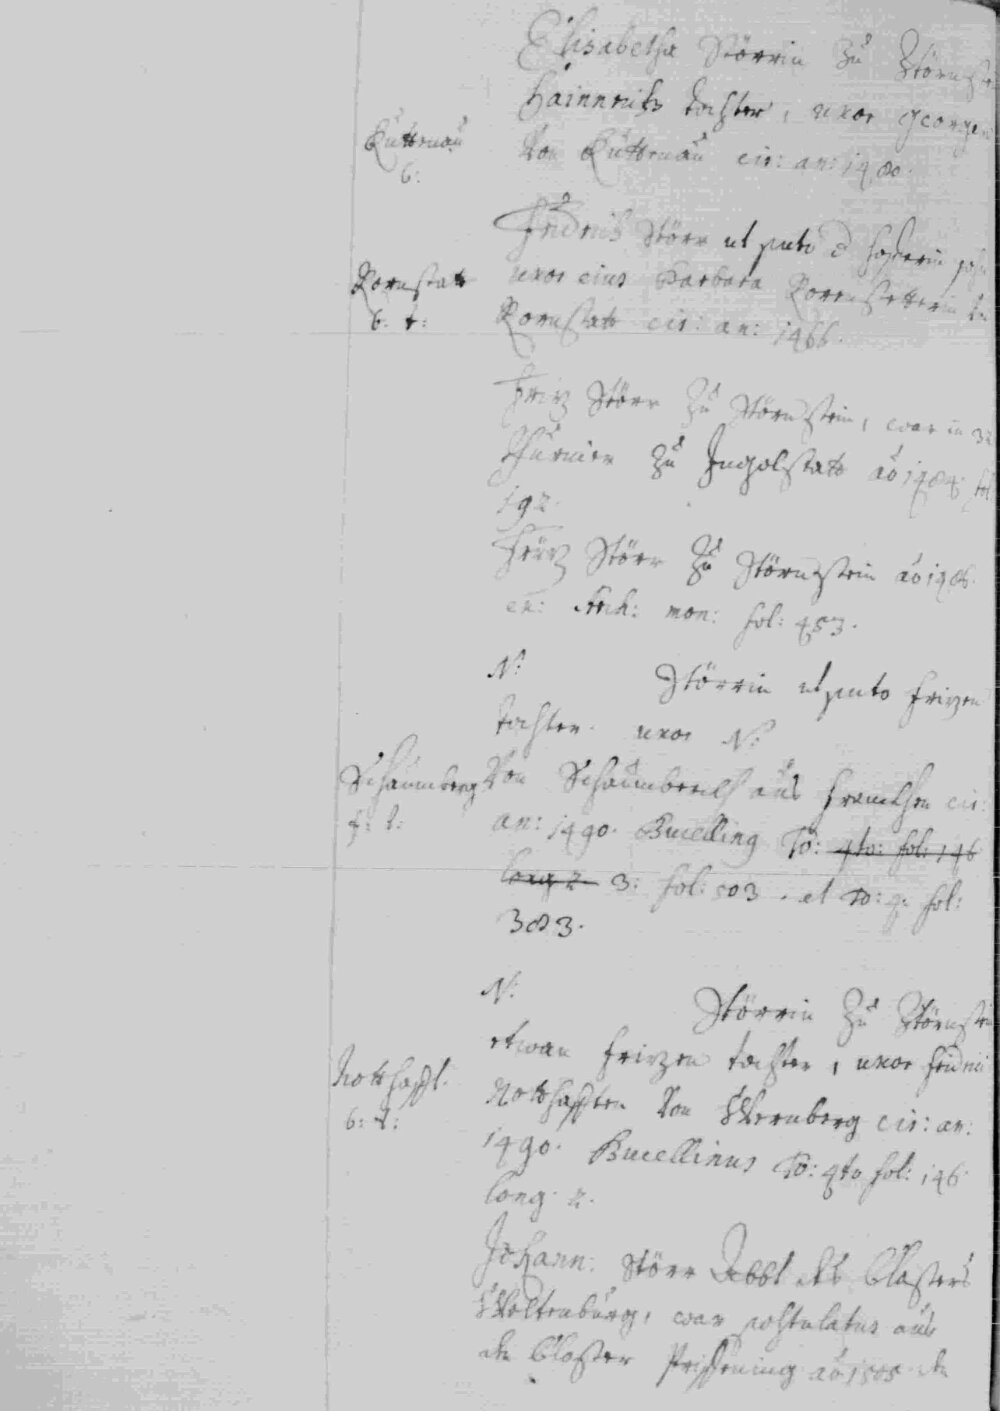 Elisabetha Störrin zu Störnste
Hainrichs tochter, uxor Georgen
Von Kuttenau cir: an: 1480.
Kuttenau
6:
Fridrich Störr ut puto d sohn
uxor eius Barbara Rornstetterin Von
Rornstatt cir: an: 1466.
Rornstatt
6: t:
Friz Störr zu Störnstein, war in 32
Thurnier zu Ingolstatt aō 1484. fol:
192.
Friz Störr zu Störnstein aō 1486.
ex: Arch: mon: fol: 453.
N: Störrin ut puto Frizen
tochter. uxor N:
Von Schaumberg aus Francken cir:
Schaumberg
f: t:
an: 1490. Bucelling To: 4to: fol: 146
cong 2 3: fol: 503. et to: 4. fol:
383.
N: Störrin zu Störnstein
etwan Frizen tochter, uxor Fridrici
Notthafft.
6: t:
Notthafften Von Wernberg cir: an:
1490. Bucellinus To: 4to fol: 146.
cong. 2.
Johann: Störr Abbt des Closters
Weltenburg, war postulatus aus
den Closter Prifhening aō 1505. den